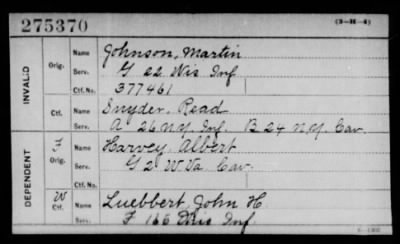 275370
(3-H-4)
INVALID
Orig.
Name Johnson, Martin
Serv. G 22 Wis Inf
Ctf. No. 377461
Ctf.
Name Snyder, Read
Serv. A 26 N.Y. Inf. B 24 N.Y. Cav.
DEPENDENT
F Orig.
Name Harvey, Albert
Serv. G 2 W Va Cav.
Ctf. No.
W Ctf.
Name Luebbert, John H.
Serv. F 166 Inf